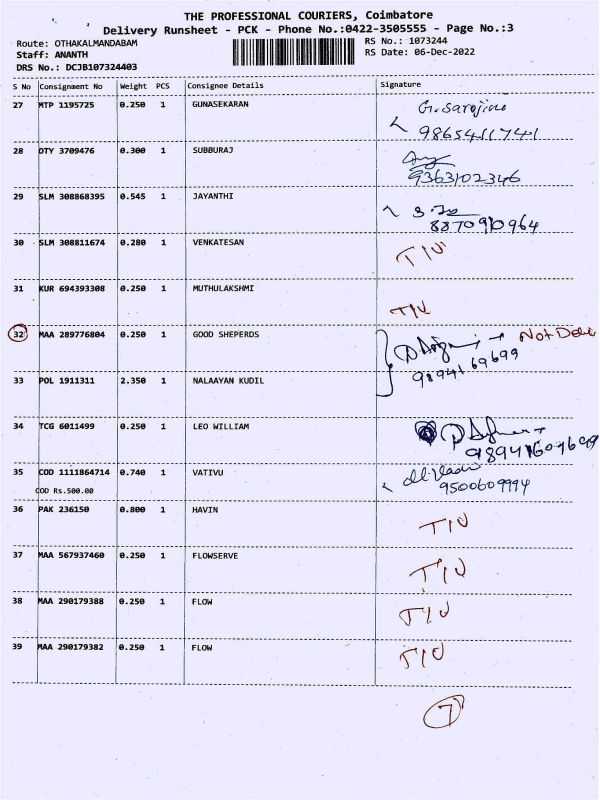 THE PROFESSIONAL COURIERS, Coimbatore
Delivery Runsheet - PCK - Phone No.:0422-3505555 - Page No.:3
Route: OTHAKALMANDABAM RS No.: 1073244
Staff: ANANTH RS Date: 06-Dec-2022
DRS No.: DCJB107324403
S No Consignment No Weight PCS Consignee Details Signature
27 MTP 1195725 0.250 1 GUNASEKARAN G. Sarojini
9865411741
28 OTY 3709476 0.300 1 SUBBURAJ
9363102346
29 SLM 308868395 0.545 1 JAYANTHI
8870910964
30 SLM 308811674 0.280 1 VENKATESAN T/U
31 KUR 694393308 0.250 1 MUTHULAKSHMI T/U
32 MAA 289776804 0.250 1 GOOD SHEPERDS Not
9894169699
33 POL 1911311 2.350 1 NALAAYAN KUDIL
34 TCG 6011499 0.250 1 LEO WILLIAM
35 COD 1111864714 0.740 1 VATIVU
COD Rs.500.00 9500609994
36 PAK 236150 0.800 1 HAVIN T/U
37 MAA 567937460 0.250 1 FLOWSERVE T/U
38 MAA 290179388 0.250 1 FLOW T/U
39 MAA 290179382 0.250 1 FLOW T/U
7